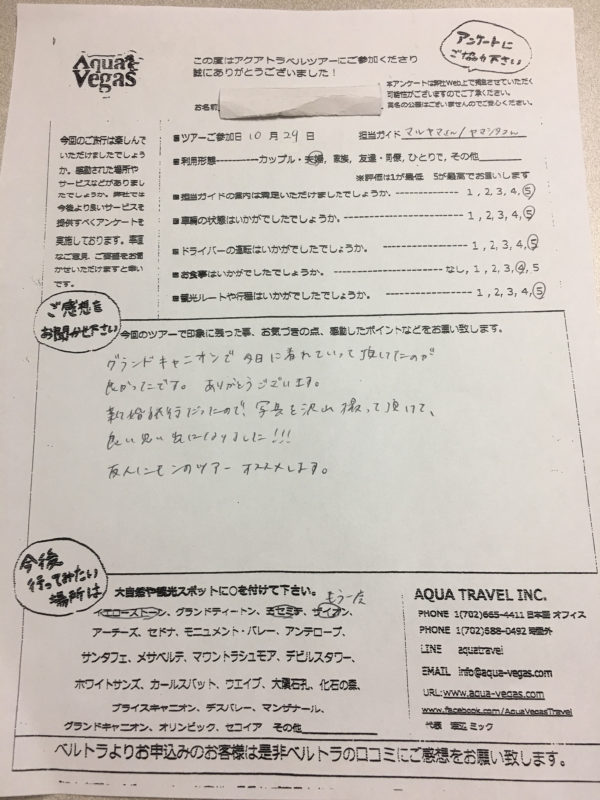 Aqua Vegas
この度はアクアトラベルツアーにご参加くださり
誠にありがとうございました!
アンケートに
ご協力下さい
本アンケートは弊社Web上で掲載させていただく
可能性がございますのでご了承ください。
実名の公開はございませんのでご安心ください。
お名前
今回のご旅行は楽しんで
いただけましたでしょう
か。感動された場所や
サービスなどがありまし
たでしょうか。弊社では
今後より良いサービスを
提供すべくアンケートを
実施しております。率直
なご意見、ご要望をお聞
かせいただけますと幸い
です。
■ツアーご参加日 10月29日 担当ガイド マルヤマさん/ヤマシタさん
■利用形態-----------カップル・夫婦, 家族, 友達・同僚, ひとりで, その他
※評価は1が最低 5が最高でお願いします
■担当ガイドの案内は満足いただけましたでしょうか。 ---------- 1 , 2, 3, 4, 5
■車輛の状態はいかがでしたでしょうか。 ---------- 1 , 2, 3, 4, 5
■ドライバーの運転はいかがでしたでしょうか。 ---------- 1 , 2, 3, 4, 5
■お食事はいかがでしたでしょうか。 ---------- なし, 1, 2, 3, 4, 5
■観光ルートや行程はいかがでしたでしょうか。 ---------- 1 , 2, 3, 4, 5
ご感想を
お聞かせ下さい
今回のツアーで印象に残った事、お気づきの点、感動したポイントなどをお願い致します。
グランドキャニオンで 夕日に着れていって頂けたのが
良かったです。 ありがとうございます。
新婚旅行だったので、写真を沢山撮って頂けて、
良い思い出になりました!!!
友人にもこのツアー オススメします。
今後
行ってみたい
場所は
大自然や観光スポットに○を付けて下さい。
もう一度
イエローストーン, グランドティートン, ヨセミテ, ザイオン,
アーチーズ, セドナ, モニュメント・バレー, アンテロープ,
サンタフェ, メサベルデ, マウントラシュモア, デビルスタワー,
ホワイトサンズ, カールスバット, ウエイブ, 大隕石孔, 化石の森,
ブライスキャニオン, デスバレー, マンザナール,
グランドキャニオン, オリンピック, セコイア その他
AQUA TRAVEL INC.
PHONE 1(702)665-4411 日本語 オフィス
PHONE 1(702)588-0492 時間外
LINE aquatravel
EMAIL info@aqua-vegas.com
URL: www.aqua-vegas.com
www.facebook.com/AquaVegasTravel
代表 渡辺 ミック
ベルトラよりお申込みのお客様は是非ベルトラの口コミにご感想をお願い致します。